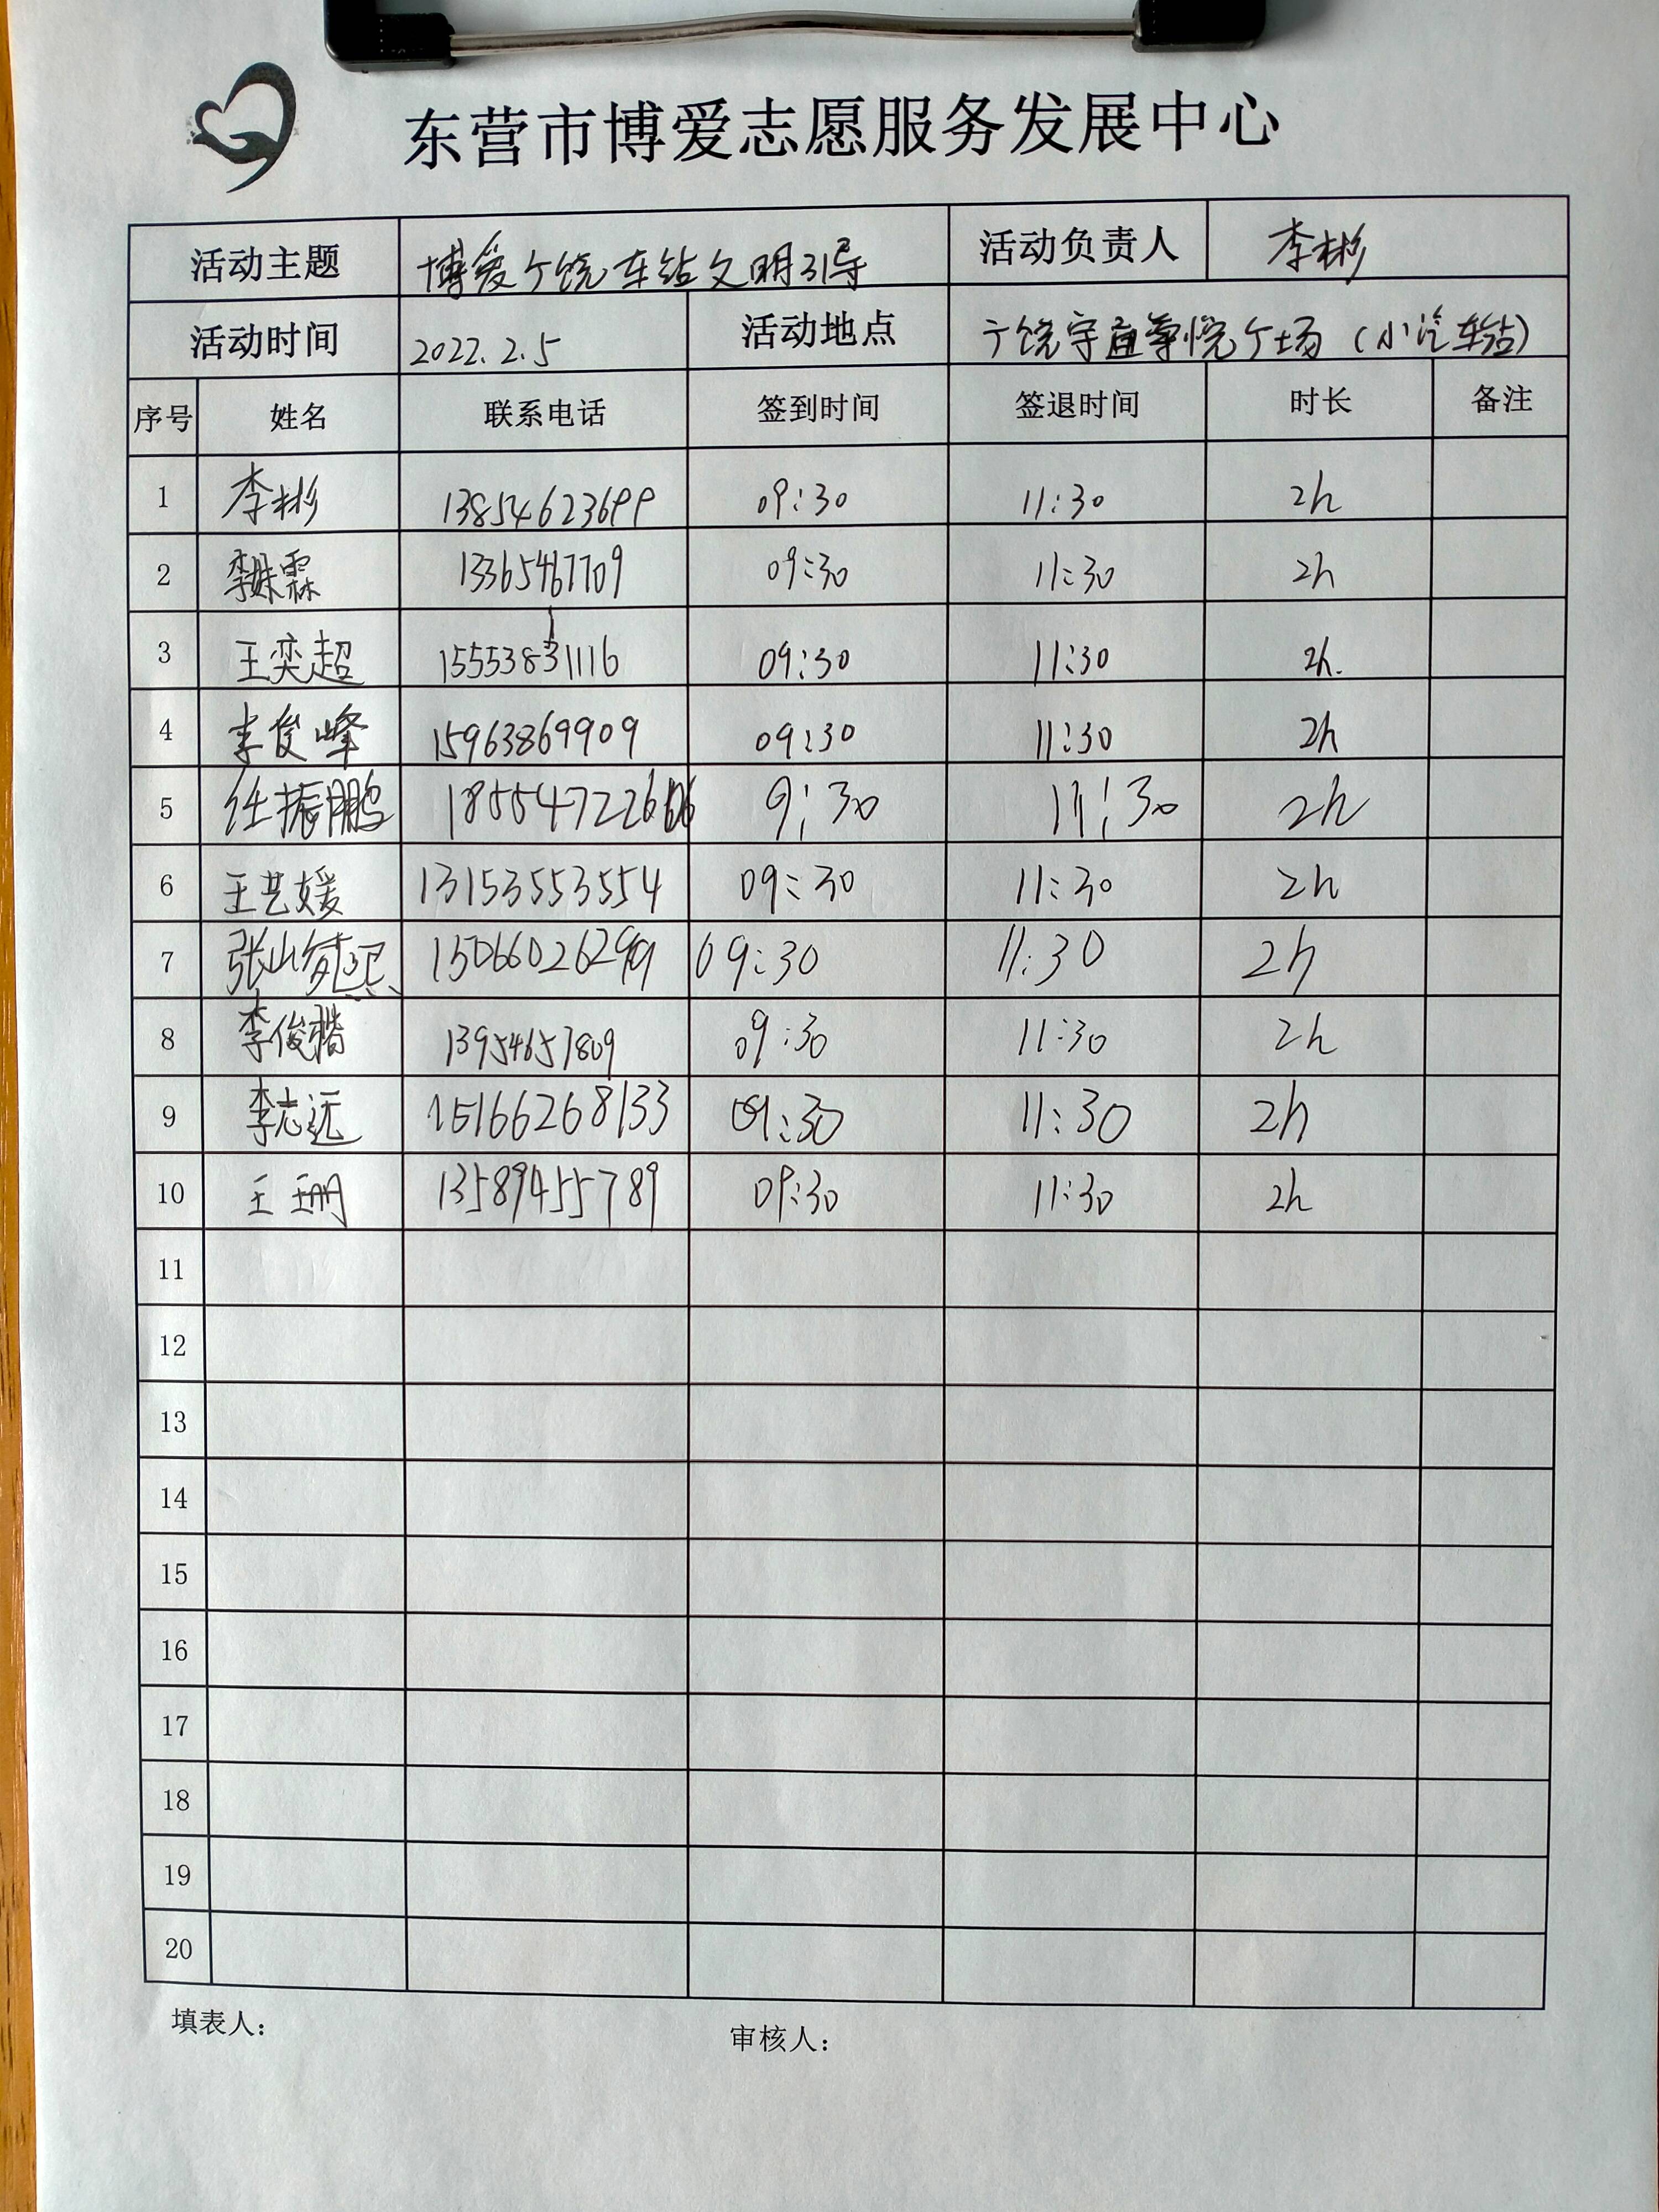 东营市博爱志愿服务发展中心
活动主题 博爱广饶车站文明引导 活动负责人 李彬
活动时间 2022.2.5 活动地点 广饶宇通尊悦广场（小汽车站）
序号 姓名 联系电话 签到时间 签退时间 时长 备注
1 李彬 13854623699 09:30 11:30 2h
2 李姝霖 13365467709 09:30 11:30 2h
3 王奕超 15553831116 09:30 11:30 2h.
4 李俊峰 15963869909 09:30 11:30 2h
5 任振鹏 18554722666 9:30 11:30 2h
6 王艺媛 13153553554 09:30 11:30 2h
7 张山 15066026299 09:30 11:30 2h
8 李俊 13954657809 09:30 11:30 2h
9 李志远 15166268133 09:30 11:30 2h
10 王珊 13589455789 09:30 11:30 2h
11
12
13
14
15
16
17
18
19
20
填表人： 审核人：